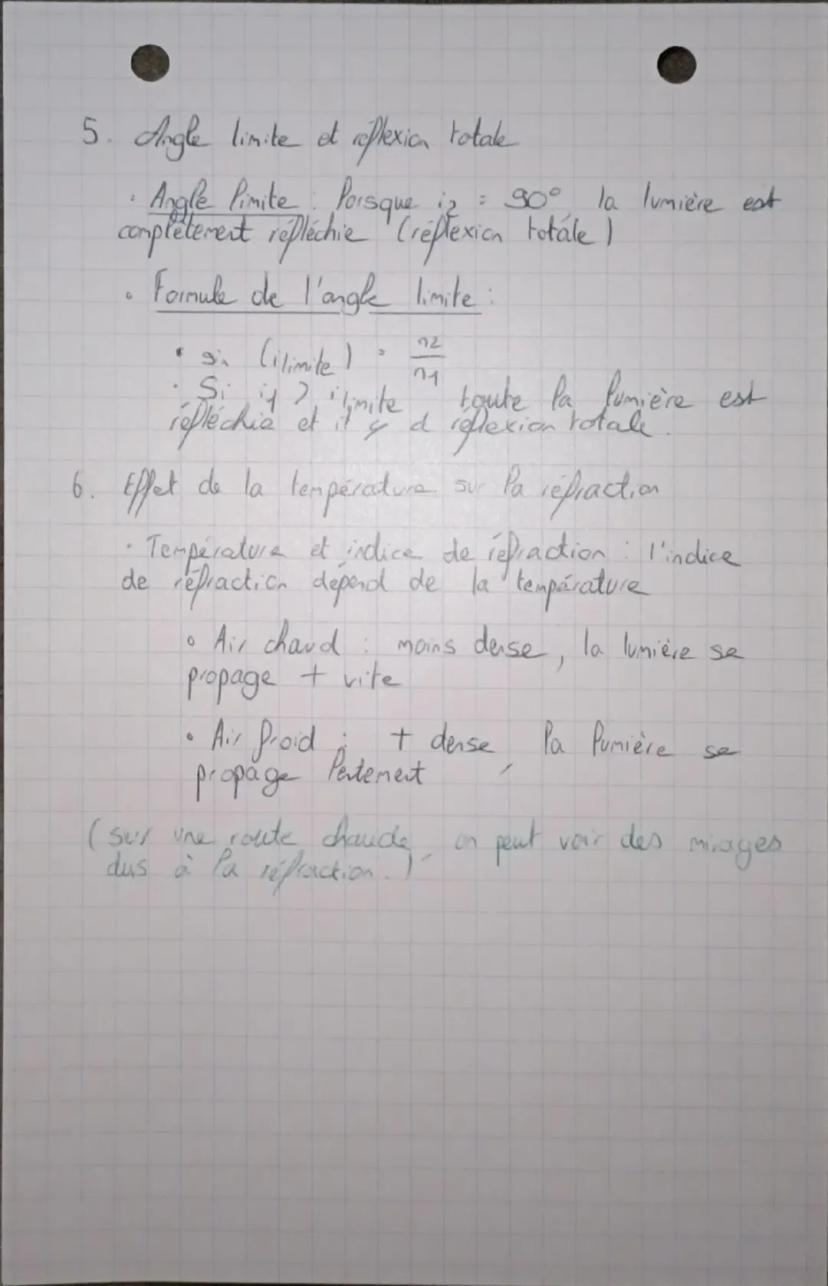 5. Angle limite et réflexion totale
· Angle limite : lorsque i2 = 90° la lumière est
complètement réfléchie (réflexion totale)
• Formule de l'angle limite :
• sin (ilimite) = n2/n1
· Si i1 > ilimite toute la lumière est
réfléchie et il y a réflexion totale.
6. Effet de la température sur la réfraction
· Température et indice de réfraction : l'indice
de réfraction dépend de la température
• Air chaud : moins dense, la lumière se
propage + vite
• Air froid : + dense, la lumière se
propage lentement
(sur une route chaude, on peut voir des mirages
dus à la réfraction.)